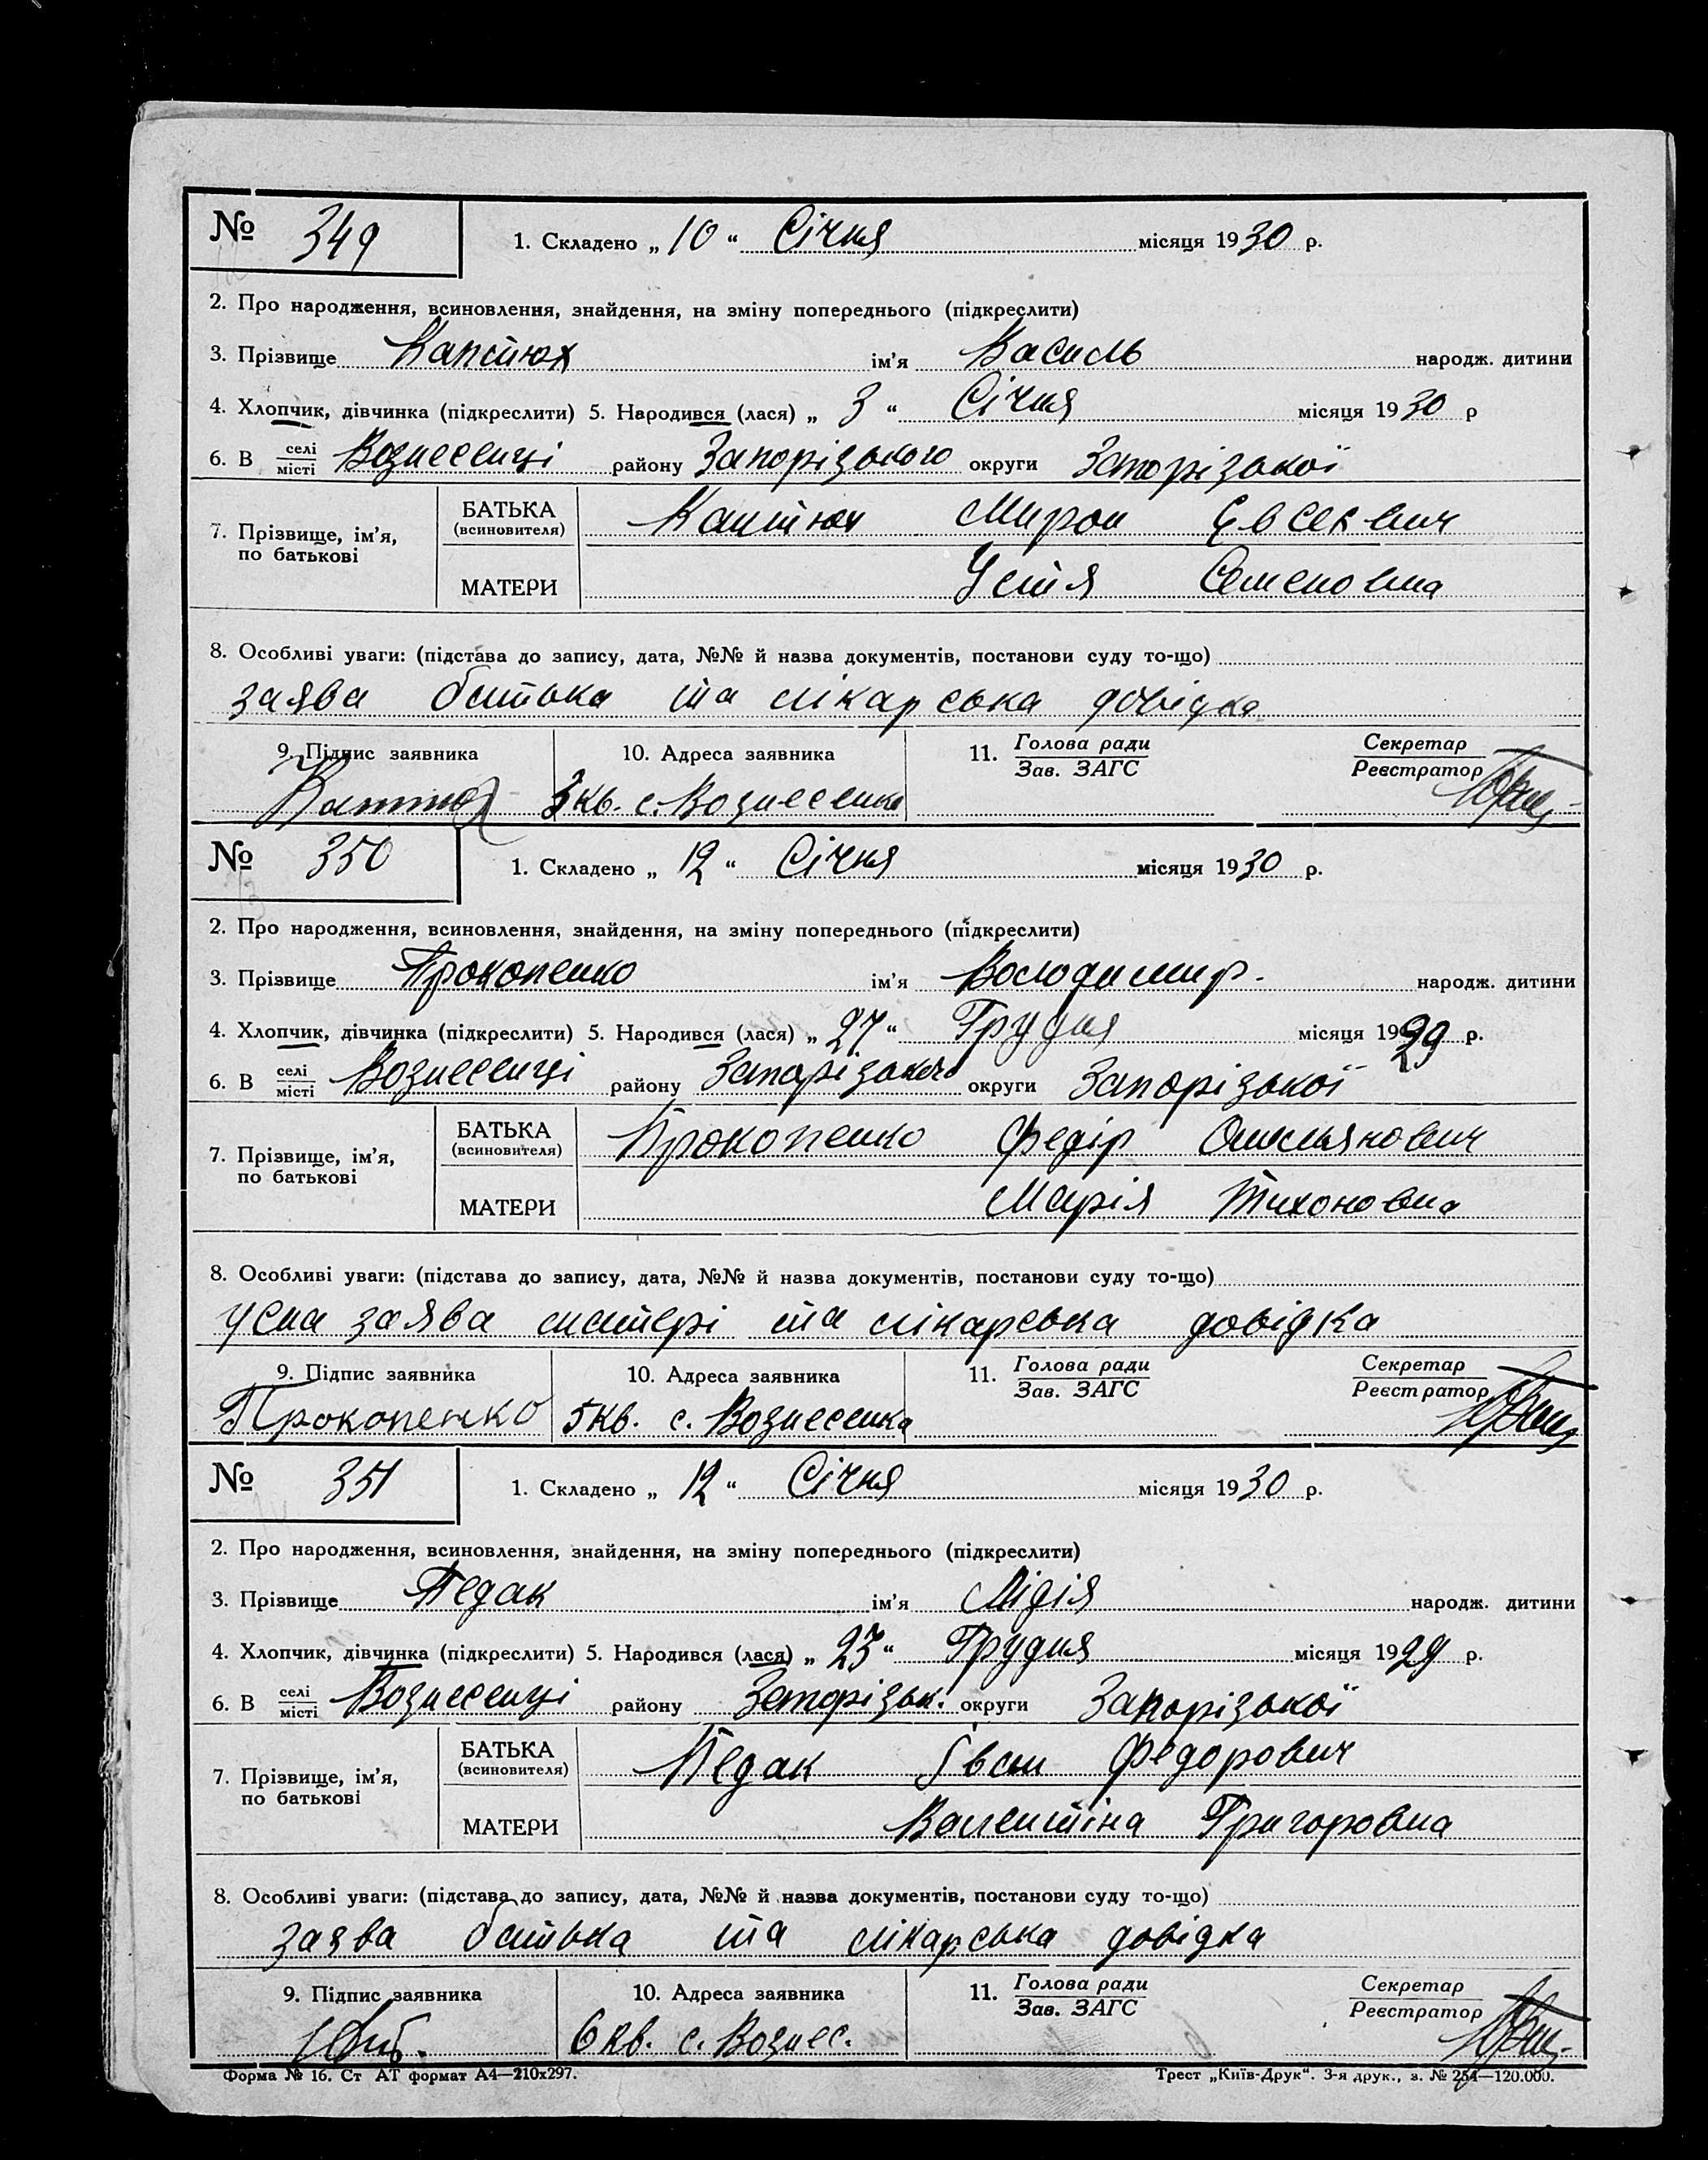 № 349 1. Складено „ 10 “ Січня місяця 1930 р.
2. Про народження, всиновлення, знайдення, на зміну попереднього (підкреслити)
3. Прізвище Каптюх ім’я Василь народж. дитини
4. Хлопчик, дівчинка (підкреслити) 5. Народився (лася) „ 3 “ Січня місяця 1930 р
6. В селі/місті Вознесенці району Запорізького округи Запорізької
7. Прізвище, ім’я, по батькові БАТЬКА (всиновителя) Каптюх Мирон Євсеєвич
МАТЕРИ Устя Семеновна
8. Особливі уваги: (підстава до запису, дата, №№ й назва документів, постанови суду то-що)
заява батька та лікарська довідка
9. Підпис заявника 10. Адреса заявника 11. Голова ради/Зав. ЗАГС Секретар/Реєстратор
Каптюх 3 кв. с. Вознесенка
№ 350 1. Складено „ 12 “ Січня місяця 1930 р.
2. Про народження, всиновлення, знайдення, на зміну попереднього (підкреслити)
3. Прізвище Прокопенко ім’я Володимир. народж. дитини
4. Хлопчик, дівчинка (підкреслити) 5. Народився (лася) „ 27 “ Грудня місяця 1929 р.
6. В селі/місті Вознесенці району Запорізького округи Запорізької
7. Прізвище, ім’я, по батькові БАТЬКА (всиновителя) Прокопенко Федір Омельянович
МАТЕРИ Марія Тихоновна
8. Особливі уваги: (підстава до запису, дата, №№ й назва документів, постанови суду то-що)
усна заява матері та лікарська довідка
9. Підпис заявника 10. Адреса заявника 11. Голова ради/Зав. ЗАГС Секретар/Реєстратор
Прокопенко 5 кв. с. Вознесенка
№ 351 1. Складено „ 12 “ Січня місяця 1930 р.
2. Про народження, всиновлення, знайдення, на зміну попереднього (підкреслити)
3. Прізвище Педак ім’я Лідія народж. дитини
4. Хлопчик, дівчинка (підкреслити) 5. Народився (лася) „ “ Грудня місяця 1929 р.
6. В селі/місті Вознесенці району Запорізьк. округи Запорізької
7. Прізвище, ім’я, по батькові БАТЬКА (всиновителя) Педак Іван Федорович
МАТЕРИ Валентіна Григоровна
8. Особливі уваги: (підстава до запису, дата, №№ й назва документів, постанови суду то-що)
заява батька та лікарська довідка
9. Підпис заявника 10. Адреса заявника 11. Голова ради/Зав. ЗАГС Секретар/Реєстратор
6 кв. с. Вознес.
Форма № 16. Ст АТ формат А4—210х297. Трест „Київ-Друк“. 3-я друк., з. № 254—120.000.